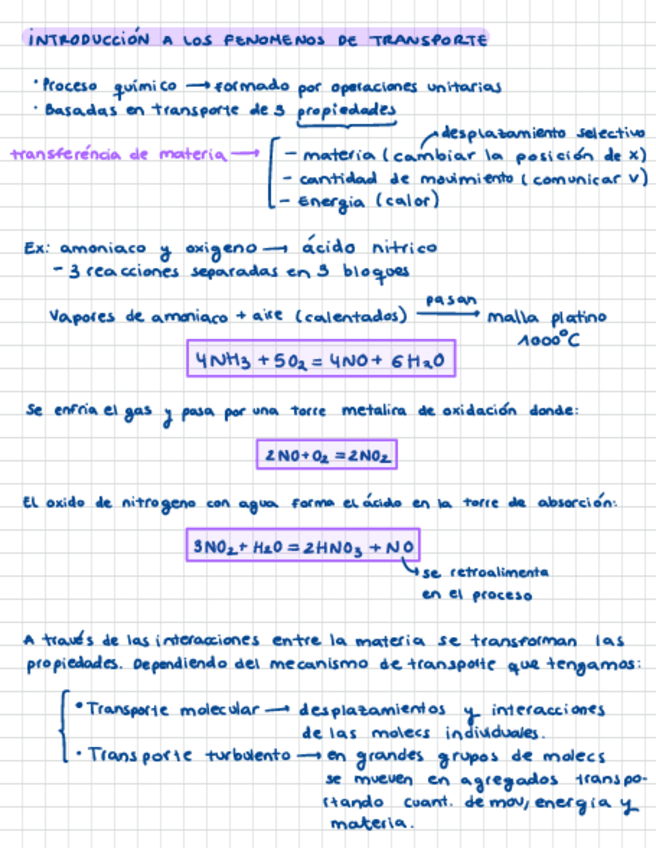 INTRODUCCIÓN A LOS FENOMENOS DE TRANSPORTE
· Proceso químico → formado por operaciones unitarias
· Basadas en transporte de 3 propiedades
desplazamiento selectivo
transferéncia de materia → - materia (cambiar la posición de x)
- cantidad de movimiento (comunicar v)
- Energia (calor)
Ex: amoniaco y oxigeno → ácido nitrico
- 3 reacciones separadas en 3 bloques
Vapores de amoniaco + aire (calentados) pasan → malla platino
1000°C
4NH3 + 5O2 = 4NO + 6H2O
Se enfria el gas y pasa por una torre metalira de oxidación donde:
2NO+O2 = 2NO2
El oxido de nitrogeno con agua forma el ácido en la torre de absorción:
3NO2 + H2O = 2HNO3 + NO
se retroalimenta
en el proceso
A través de las interacciones entre la materia se transforman las
propiedades. Dependiendo del mecanismo de transporte que tengamos:
• Transporte molecular → desplazamientos y interacciones
de las molecs individuales.
• Transporte turbulento → en grandes grupos de molecs
se mueven en agregados transpo-
rtando cuant. de mov, energia y
materia.